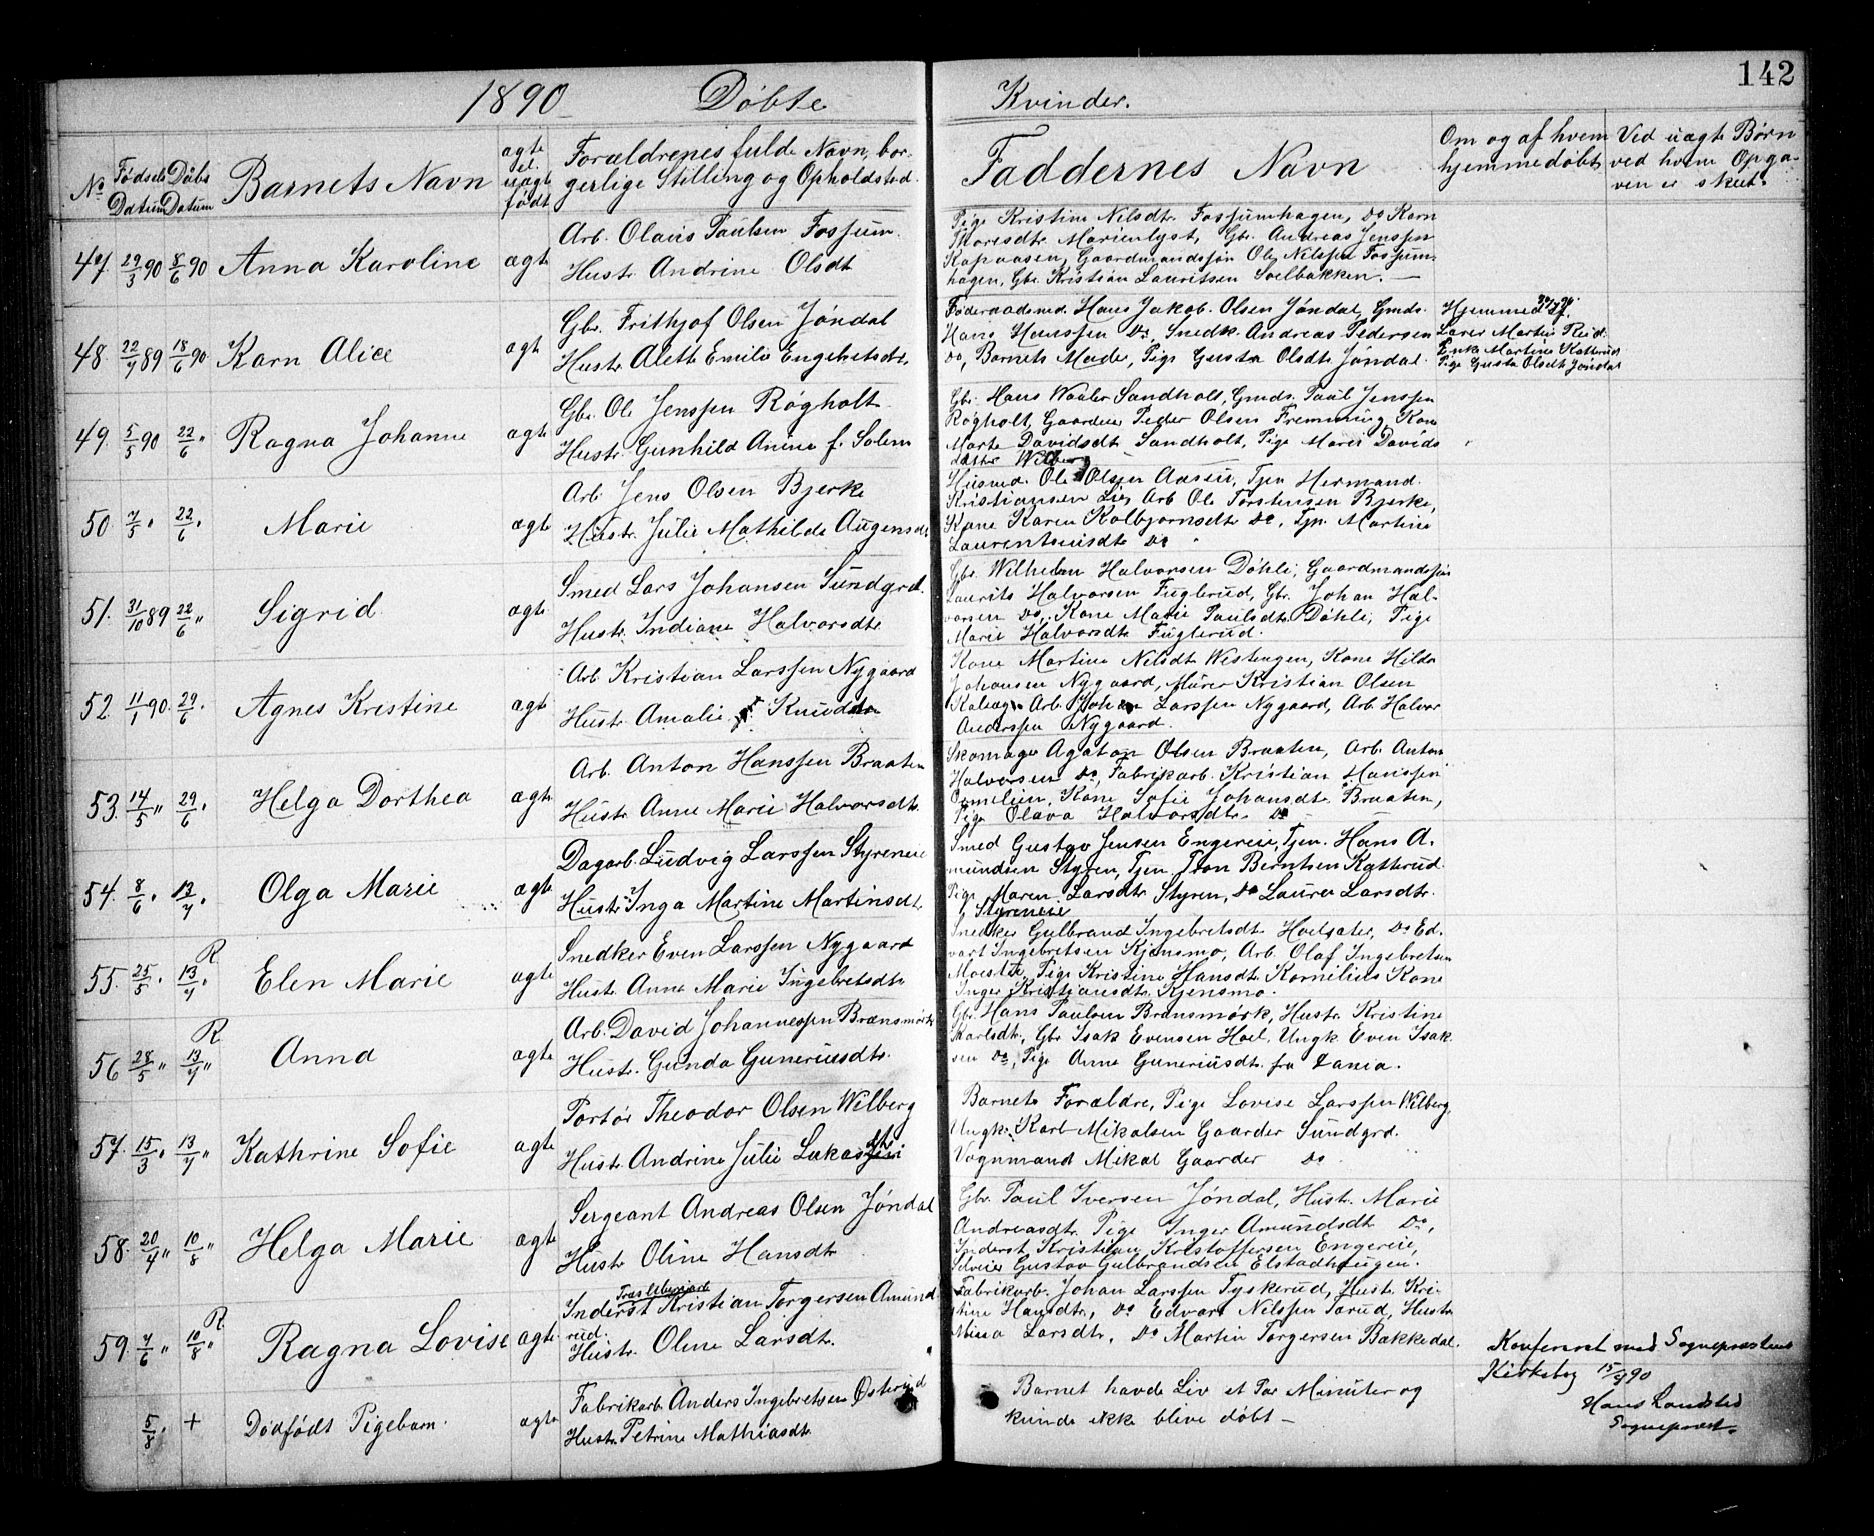 142
1890 Døbte Kvinder.
No Fødsels Datum Daabs Datum Barnets Navn ægte el. uægte født Forældrenes fulde Navn, borgerlige Stilling og Opholdsted. Faddernes Navn Om og af hvem hjemmedøbt Ved uægte Børn ved hvem Opgaven er skeet.
47. 29/3 90 8/6 90 Anna Karoline ægte
Arb. Olaus Paulsen Fossum.
Hustr. Andrine Olsdt
Pige Kristine Nilsdtr. Fossumhagen, Do Karn
Thorisdtr Marienlyst, Gbr. Andreas Jenssen
Kapaasen, Gaardmandssøn Ole Nilssen Fossum-
hagen, Gbr. Kristian Lauritsen Soelbakken.
48. 22/7 89 18/6 90 Karn Alice ægt
Gbr. Frithjof Olsen Jøndal
Hustr. Aleth Emilie Engebretsdtr.
Føderaadsmd. Hans Jakob Olsen Jøndal, Gmds.
Hans Hanssen Do. Snedk. Andreas Pedersen
Do, Barnets Moder, Pige Gusta Olsdtr Jøndal.
Hjemmed.
Lærer Martin Reid.
Enke Martine Katterud
Pige Gusta Olsdt Jøndal
49. 5/5 90 22/6 " Ragna Johanne ægte
Gbr. Ole Jenssen Røgholt
Hustr. Gunhild Anine f. Solem
Gbr. Hans Waaler Sandholt, Gmds. Paul Jenssen
Røgholt, Gaardeier Peder Olsen Fremming, Kone
Marte Davidsdt Sandholt, Pige Marei Davids
datter Wilberg
50. 7/5 " 22/6 " Marie ægte
Arb. Jens Olsen Bjerke
Hustr. Julie Mathilde Augensdt
Husmd. Ole Olsen Aasen, Tjn Hermand
Kristiansen Lie, Arb Ole Torstensen Bjerke,
Kone Karen Kolbjørnsdtr Do, Tjn. Martine
Laurentsuisdtr Do
51. 31/10 89 22/6 " Sigrid ægte
Smed Lars Johansen Sundgrd.
Hustr. Indiane Halvorsdtr
Gbr. Wilhelm Halvorsen Døhli, Gaardmandssøn
Laurits Halvorsen Fuglerud, Gbr. Johan Hal-
vorsen Do, Kone Marie Paulsdtr Døhli, Pige
Marie Halvorsdtr Fuglerud.
52. 11/1 90. 29/6 " Agnes Kristine ægt
Arb. Kristian Larssen Nygaard
Hustr. Amalie Knudsdtr
Kone Martine Nilsdtr Westengen, Kone Hilda
Johansen Nygaard, Murer Kristian Olsen
Arb. Johan Larssen Nygaard, Arb. Halvor
Anderssen Nygaard.
53. 14/5 " 29/6 " Helga Dorthea ægte
Arb. Anton Hanssen Braaten
Hustr. Anne Marie Halvorsdtr.
Skomager Agaton Olsen Braaten, Arb. Anton
Halvorsen Do, Fabrikarb. Kristian Hanssen
Kone Sofie Johansdtr. Braaten,
Pige Olava Halvorsdtr. Do
54. 8/6 " 13/7 " Olga Marie ægte
Dagarb. Ludvig Larssen Styreneie
Hustr. Inga Martine Martinsdtr
Smed Gustav Jensen Engereie, Tjen. Hans A-
mundsen Styren, Tjen. Tron Berntsen Katterud.
Pige Maren Larsdtr Styren, Do Laurea Larsdtr.
Styreneie
55. 25/5 " 13/7 " R Elen Marie ægte
Snedker Even Larssen Nygaard
Hustr. Anne Marie Ingebretsdtr
Snedker Gulbrand Ingebretsdt Hoelsæter, Do Ed-
vart Ingebretsen Kjensmo, Arb. Olaf Ingebretsen
Moestue, Pige Kristine Hansdtr Kornilius Kone
Inger Kristiansdtr. Kjensmo.
56 28/5 " 13/7 " R Anna ægte
Arb. David Johannessen Brænsmørk
Hustr. Gunda Guneriusdtr.
Gbr. Hans Paulsen Brænsmørk, Hustr. Kristine
Karlsdtr., Gbr Isak Evensen Hoel, Ungk. Even Isak-
sen Do, Pige Anne Guneriusdt. fra Dania.
57. 15/3 " 13/7 " Kathrine Sofie ægte
Portør Theodor Olsen Wilberg
Hustr. Andrine Julie Lukasdtr
Barnets Forældre, Pige Lovise Larssen Wilberg,
Ungk. Karl Mikalsen Gaarder Sundgrd.
Vognmand Mikal Gaarder Do
58. 20/4 " 10/8 " Helga Marie ægte
Sergeant Andreas Olsen Jøndal
Hustr Oline Hansdtr
Gbr. Paul Iversen Jøndal, Hustr. Marie
Andreasdtr. Pige Inger Amundsdt Do,
Inderst Kristian Kristoffersen Engereie,
Selveier Gustav Gulbrandsen Elstadhaugen.
59. 7/6 " 10/8 " R Ragna Lovise ægte
Træsliberiarb
Inderst Kristian Torgersen Amund
rud.
Hustr. Oline Larsdtr.
Fabrikarb. Johan Larssen Tyskerud, Hustr. Kri-
stine Hansdtr, Do Edvart Nilssen Torud, Hustr
Mina Larsdtr, Do Martin Torgersen Bakkedal.
Konfereret med Sognepræstens
Kirkebog 15/9 90
Hans Landsted
Sognepræst.
5/8 " + Dødfødt Pigebarn. ægte
Fabrikarb Anders Ingebretsen Østerud
Hustr. Petrine Mathiasdtr
Barnet havde Liv et Par Minuter og
kunde ikke blive døbt —